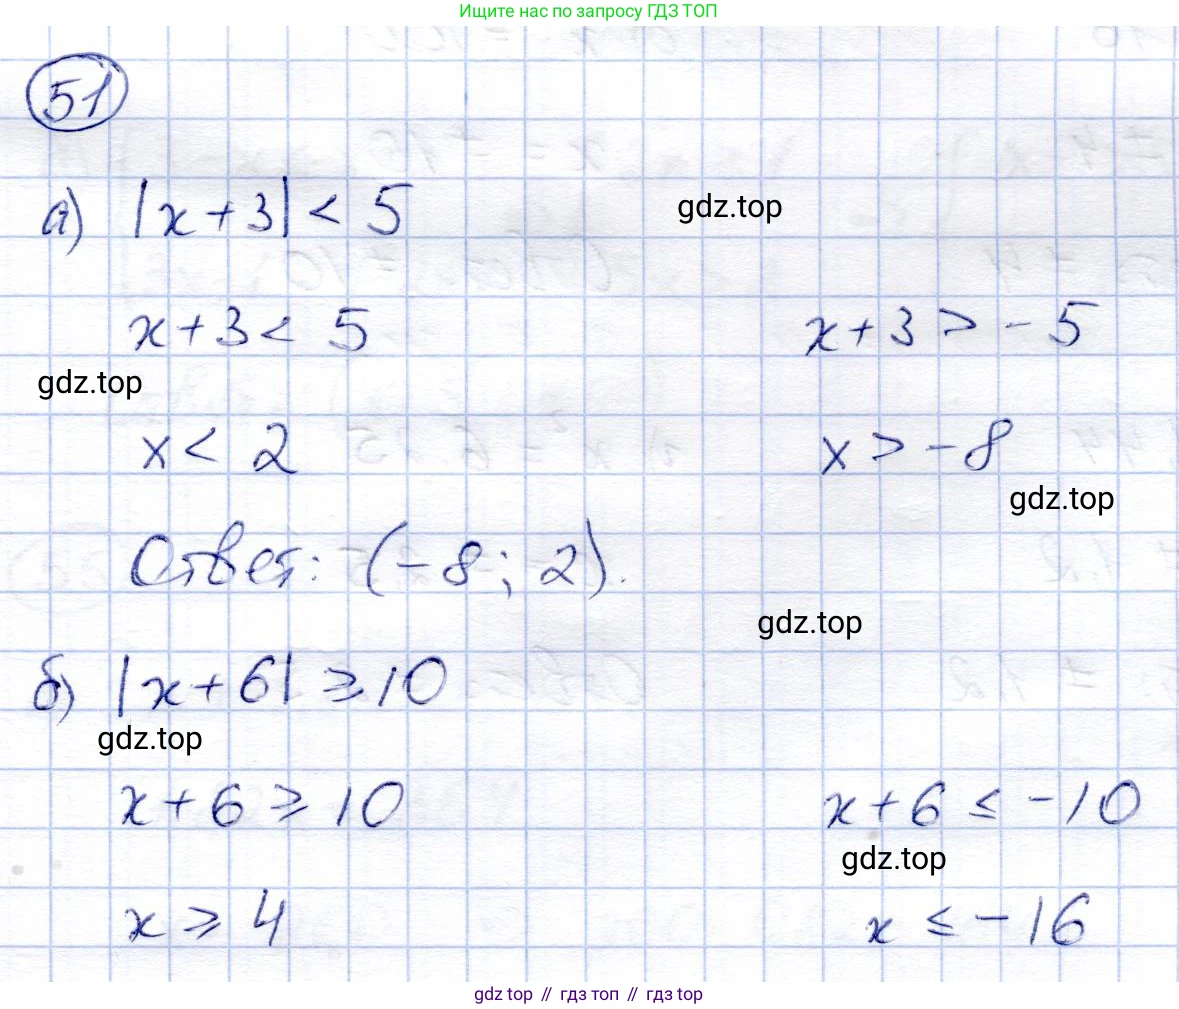 Ищите нас по запросу ГДЗ ТОП
51
а) |x+3| < 5
gdz.top
x+3 < 5 x+3 > -5
gdz.top
x < 2 x > -8
gdz.top
Ответ: (-8; 2).
gdz.top
б) |x+6| ⩾ 10
gdz.top
x+6 ⩾ 10 x+6 ≤ -10
gdz.top
x ⩾ 4 x ≤ -16
gdz top // гдз топ // гдз top